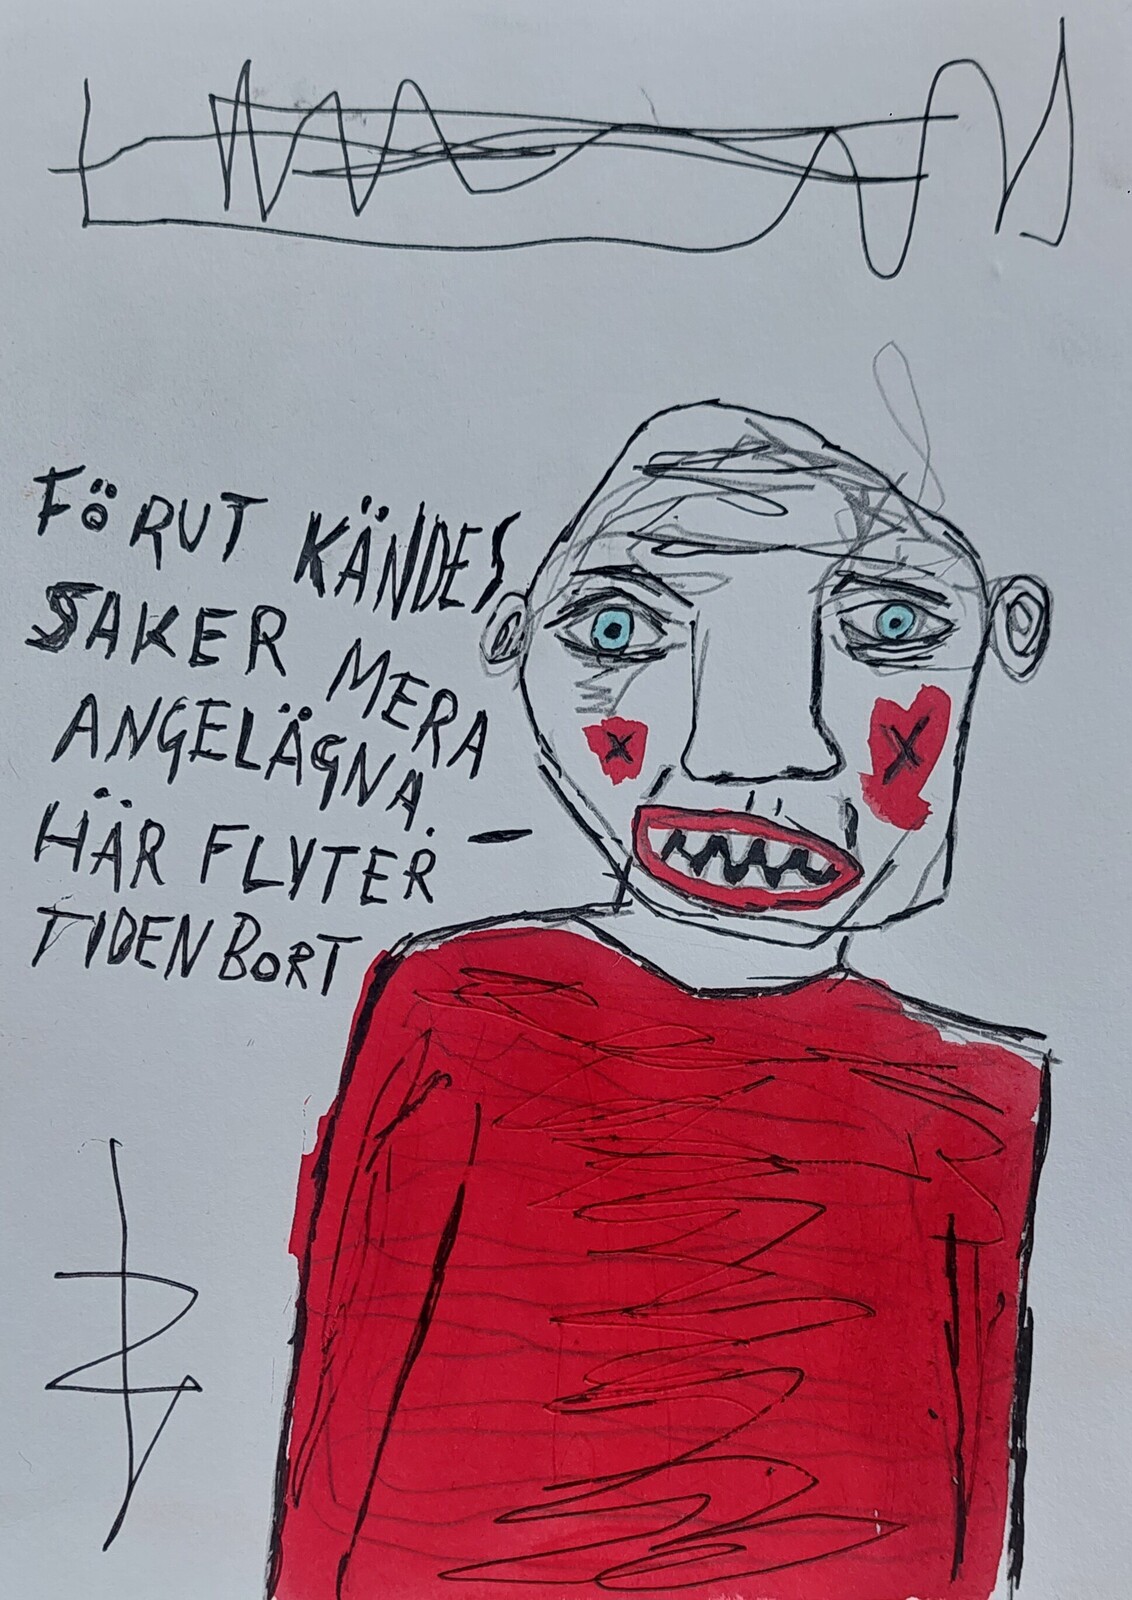 FÖRUT KÄNDES
SAKER MERA
ANGELÄGNA.
HÄR FLYTER –
TIDEN BORT